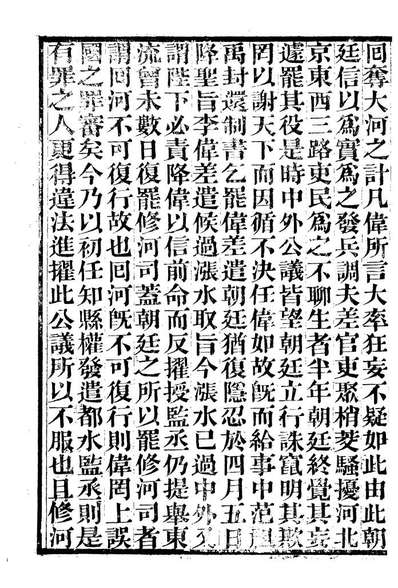 回奪大河之計凡偉所言大率狂妄不疑如此由此朝
廷信以爲實爲之發兵調夫差官吏聚梢芟騷擾河北
京東西三路吏民爲之不聊生者半年朝廷終覺其妄
遽罷其役是時中外公議皆望朝廷立行誅竄明其欺
罔以謝天下而因循不決任偉如故旣而給事中范祖
禹封還制書乞罷偉差遣朝廷猶復隱忍於四月五日
降聖旨李偉差遣候過漲水取旨今漲水已過中外
謂陛下必責降偉以信前命而反擢授監丞仍提舉東
流曾未數日復罷修河司蓋朝廷之所以罷修河司者
謂回河不可復行故也回河旣不可復行則偉罔上誤
國之罪審矣今乃以初任知縣權發遣都水監丞則是
有罪之人更得違法進擢此公議所以不服也且修河